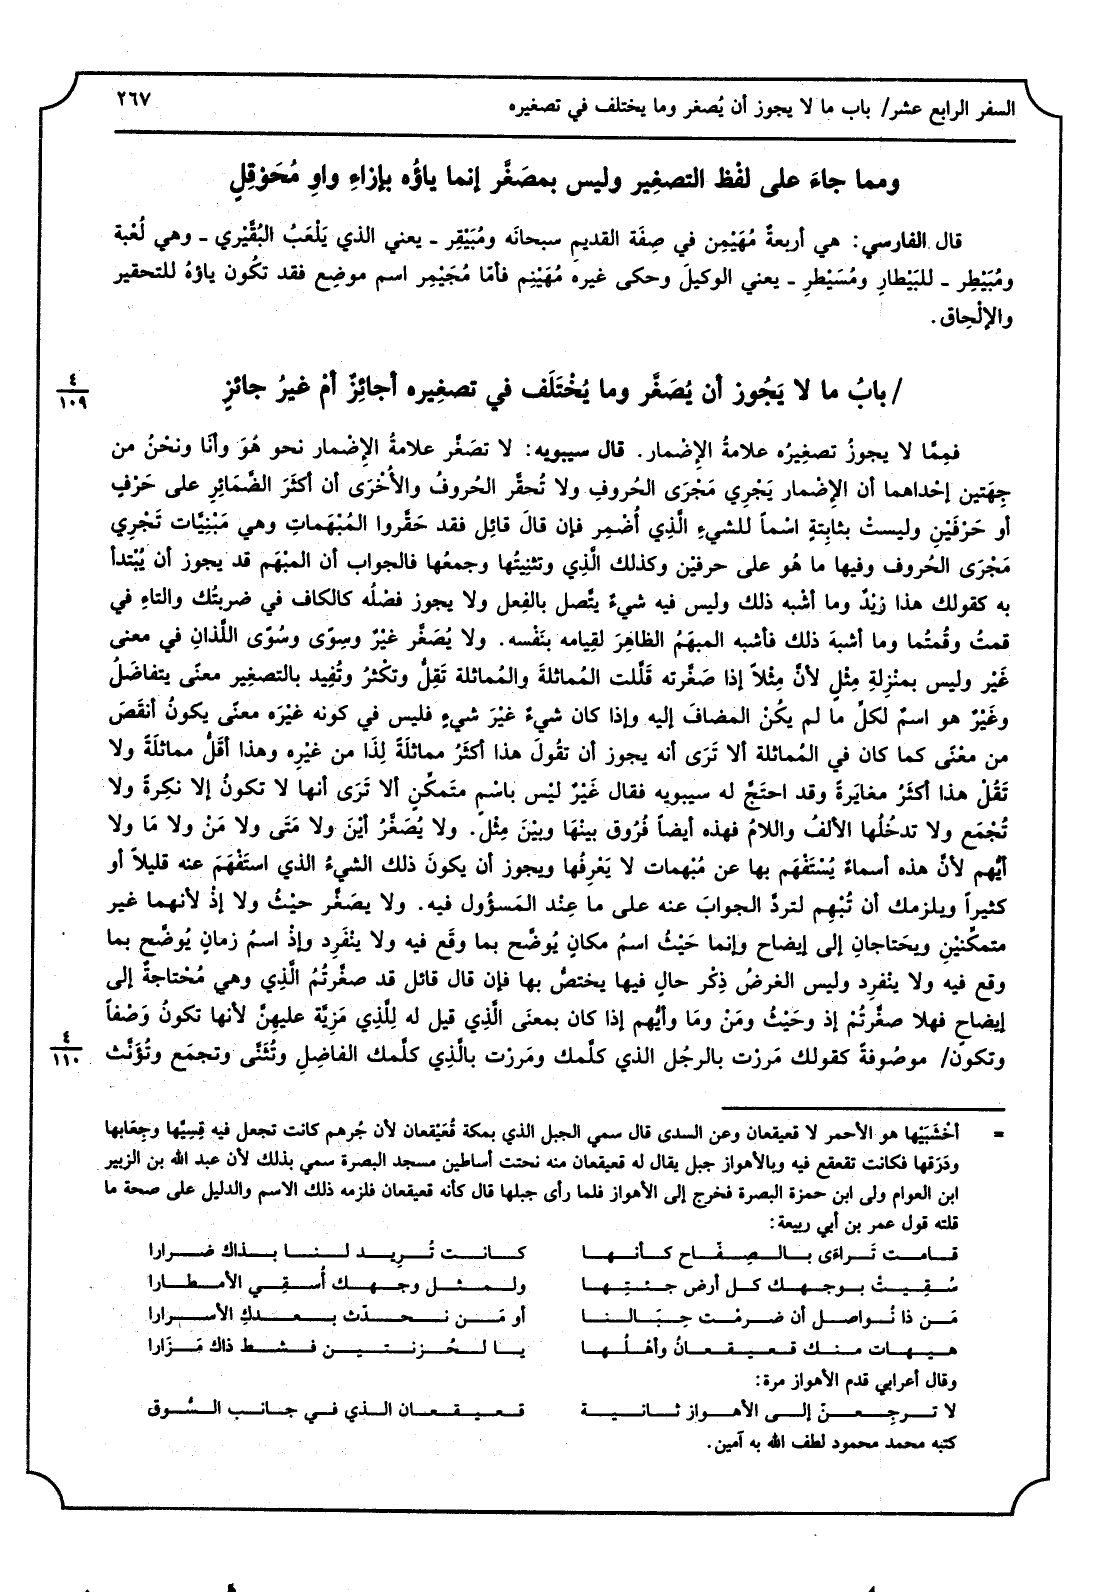 السفر الرابع عشر/ باب ما لا يجوز أن يُصغر وما يختلف في تصغيره
٢٦٧
ومما جاءَ على لفْظ التصغِير وليس بمصَغَّر إنما ياؤُه بإزاءِ واوِ مُحَوْقِلٍ
قال الفارسي: هي أربعةٌ مُهَيْمِن في صِفَة القديمِ سبحانَه ومُبَيْقِر ـ يعني الذي يَلْعَبُ البُقَّيْرِي ـ وهي لُعْبة
ومُبَيْطِر ـ للبَيْطارِ ومُسَيْطر ـ يعني الوكيلَ وحكى غيره مُهَيْنِم فأمّا مُجَيْمِر اسم موضِع فقد تكُون ياؤهُ للتحقير
والإلْحِاق.
٤
١٠٩
/ بابُ ما لا يَجُوز أن يُصَغَّر وما يُخْتَلَف في تصغِيره أجائِزٌ أمْ غيرُ جائزٍ
فمِمَّا لا يجوزُ تصغِيرُه علامةُ الإِضْمار. قال سيبويه: لا تصَغَّر علامةُ الإِضْمار نحو هُوَ وأنَا ونحْنُ من
جِهَتين إحْداهما أن الإضْمار يَجْرِي مَجْرَى الحُروفِ ولا تُحقَّر الحُروفُ والأُخْرَى أن أكثَرَ الضَّمائِرِ على حَرْفٍ
أو حَرْفَيْنِ وليستْ بثابِتةٍ اسْماً للشيءِ الَّذي أُضْمِر فإن قالَ قائِل فقد حَقَّروا المُبْهَماتِ وهي مَبْنِيَّات تَجْرِي
مَجْرَى الحُروف وفيها ما هُو على حرفيْن وكذلك الَّذِي وتثنِيتُها وجمعُها فالجواب أن المبْهَم قد يجوز أن يُبْتدأ
به كقولك هذا زيْدٌ وما أشْبه ذلك وليس فيه شيءٌ يتَّصل بالفِعل ولا يجوز فصْلُه كالكاف في ضربتُك والتاءِ في
قمتُ وقُمتُما وما أشبهَ ذلك فأشبه المبهَمُ الظاهِرَ لقِيامه بنَفْسه. ولا يُصَغَّر غيْرٌ وسِوًى وسُوًى اللَّذانِ في معنى
غَيْر وليس بمنْزِلةِ مِثْلٍ لأنَّ مِثْلاً إذا صَغَّرته قَلَّلت المُماثلةَ والمُماثلة تَقِلُّ وتكْثرُ وتُفِيد بالتصغِير معنًى يتفاضَلُ
وغَيْرٌ هو اسمٌ لكلِّ ما لم يكُنْ المضافَ إليه وإذا كان شيءٌ غيْرَ شيءٍ فليس في كونه غيْرَه معنًى يكونُ أنقَصَ
من معْنًى كما كان في المُماثلة ألا تَرَى أنه يجوز أن تقُولَ هذا أكثَرُ مماثلَةً لِذَا من غيْرِه وهذا أقَلُّ مماثلَةً ولا
تَقُلْ هذا أكثَرُ مغايَرةً وقد احتَجَّ له سيبويه فقال غَيْرٌ ليْس باسْمٍ متَمكّنٍ ألا تَرَى أنها لا تكونُ إلا نكِرةً ولا
تُجْمَع ولا تدخُلُها الألفُ واللامُ فهذه أيضاً فُرُوق بينْهَا وبيْنَ مِثْل. ولا يُصَغَّرُ أيْنَ ولا مَتَى ولا مَنْ ولا مَا ولا
أيُّهم لأنَّ هذه أسماءٌ يُسْتَفْهَم بها عن مُبْهمات لا يَعْرِفُها ويجوز أن يكونَ ذلك الشيءُ الذي استَفْهَمَ عنه قليلاً أو
كثيراً ويلزمك أن تُبْهِم لتردَّ الجوابَ عنه على ما عِنْد المَسؤُول فيه. ولا يصَغَّر حيْثُ ولا إذْ لأنهما غير
متمكِّنيْنِ ويحَتاجانِ إلى إيضاح وإنما حَيْثُ اسمُ مكانٍ يُوضَّح بما وقَع فيه ولا ينْفَرِد وإذْ اسمُ زمانٍ يُوضَّح بما
وقع فيه ولا ينْفرِد وليس الغرضُ ذِكْر حالٍ فيها يختصُّ بها فإن قال قائل قد صغَّرتُمُ الَّذِي وهي مُحْتاجةٌ إلى
إيضاحٍ فهلا صغَّرتُمْ إذ وحَيْثُ ومَنْ ومَا وأيُّهم إذا كان بمعنَى الَّذي قيل له لِلَّذِي مَزِيَّة عليهِنَّ لأنها تكونُ وَصْفاً
٤
١١٠
وتكون/ موصُوفةً كقولك مَررْت بالرجُل الذي كلّمك ومَررْت بالَّذِي كلَّمك الفاضِلِ وتُثَنَّى وتجمَع وتُؤَنَّث
= أخْشَبَيْها هو الأحمر لا قعيقعان وعن السدى قال سمي الجبل الذي بمكة قُعَيْقعان لأن جُرهم كانت تجعل فيه قِسِيَّها وجِعَابها
ودَرَقها فكانت تقعقع فيه وبالأهواز جبل يقال له قعيقعان منه نحتت أساطين مسجد البصرة سمي بذلك لأن عبد الله بن الزبير
ابن العوام ولى ابن حمزة البصرة فخرج إلى الأهواز فلما رأى جبلها قال كأنه قعيقعان فلزمه ذلك الاسم والدليل على صحة ما
قلته قول عمر بن أبي ربيعة:
قامت تَراءَى بالصِفّاح كأنها كانت تُريد لنا بذاك ضرارا
سُقِيتْ بوجهك كل أرض جئتِها ولمثل وجهك أُسقِي الأمطارا
مَن ذا نُواصل أن ضرمْت حِبَالنا أو مَن نحدّث بعدكِ الأسرارا
هيهات منك قعيقعانُ وأهلُها يا لحُزنتين فشط ذاك مَزَارا
وقال أعرابي قدم الأهواز مرة:
لا ترجِعنّ إلى الأهواز ثانية قعيقعان الذي في جانب السُّوق
كتبه محمد محمود لطف الله به آمين.